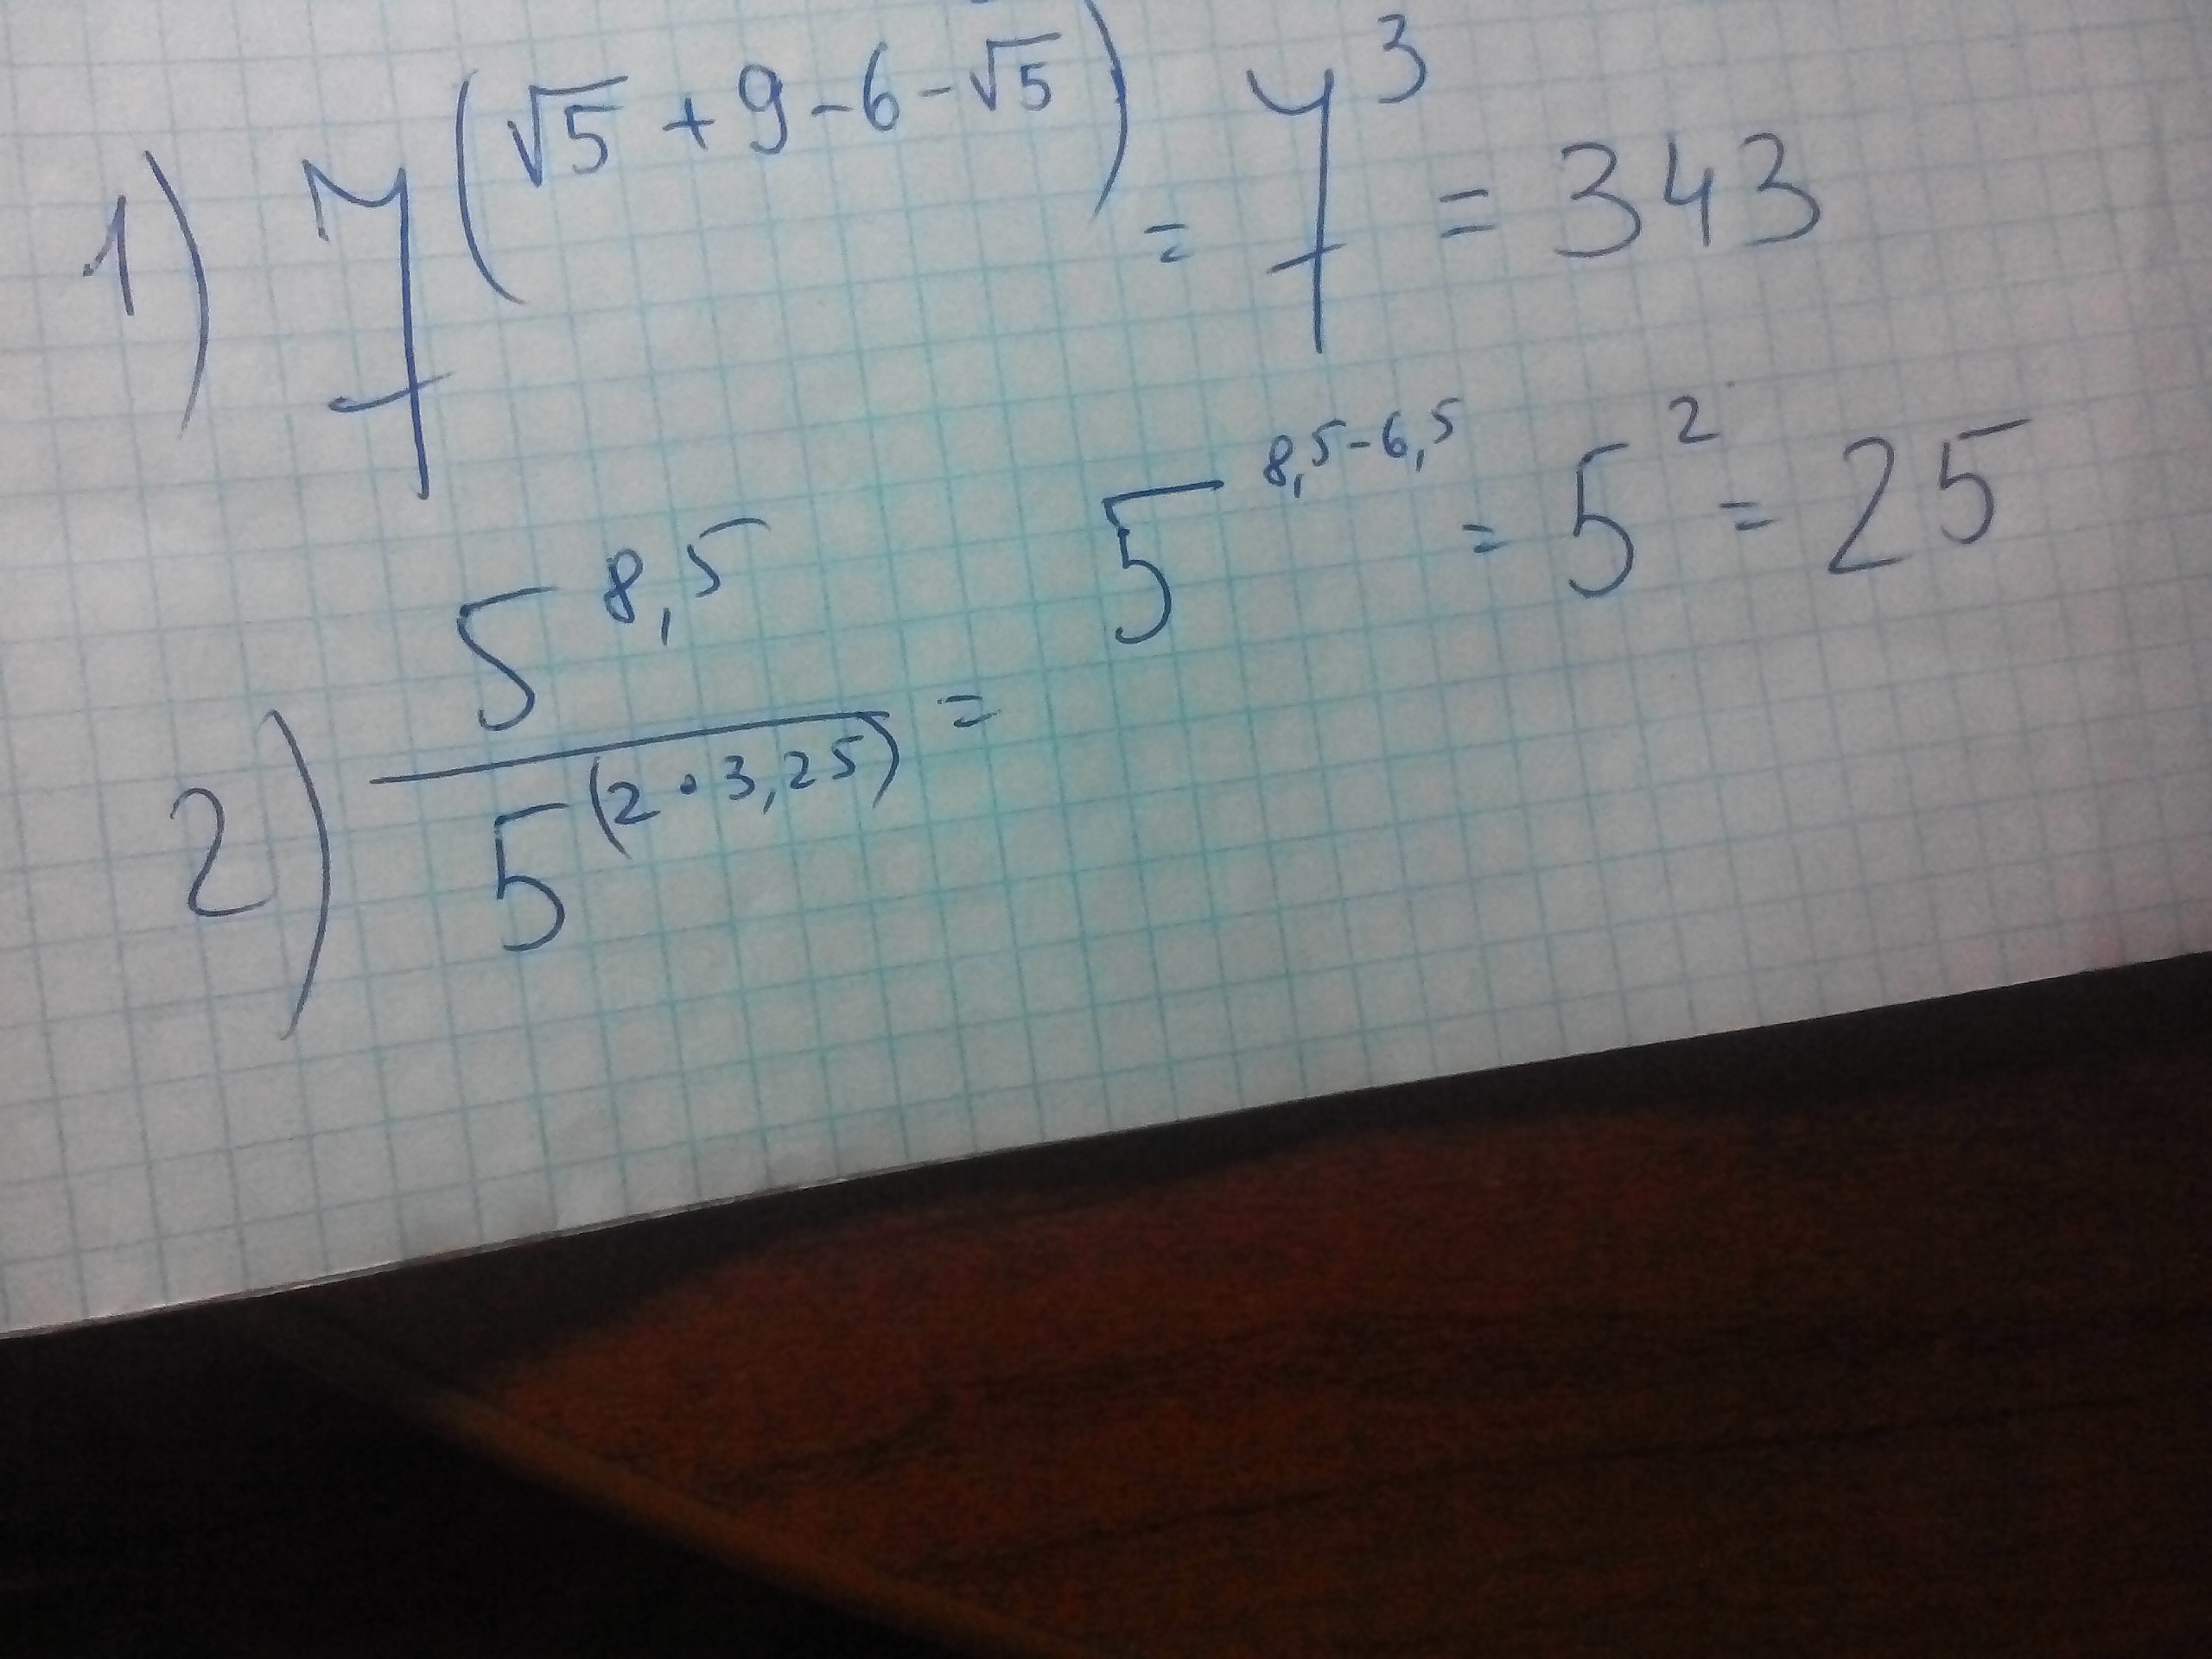 1) 7^(√5 + 9 - 6 - √5) = 7^3 = 343
2) 5^8,5 / 5^(2 · 3,25) = 5^8,5-6,5 = 5^2 = 25